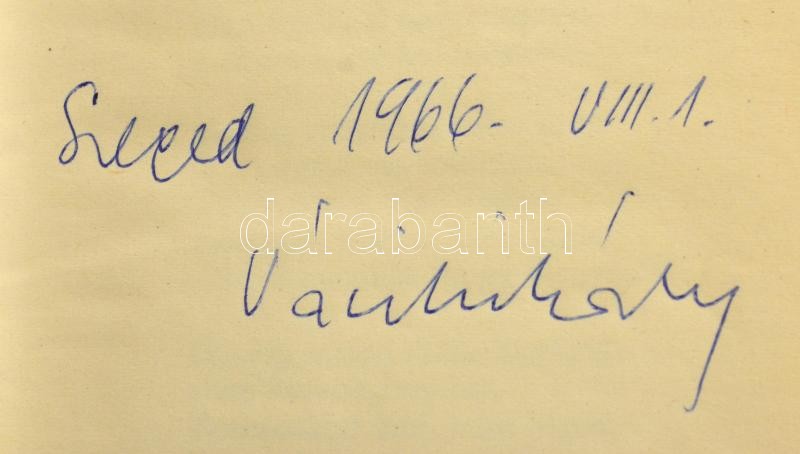 Szeged 1966. VIII. 1.
darabanth